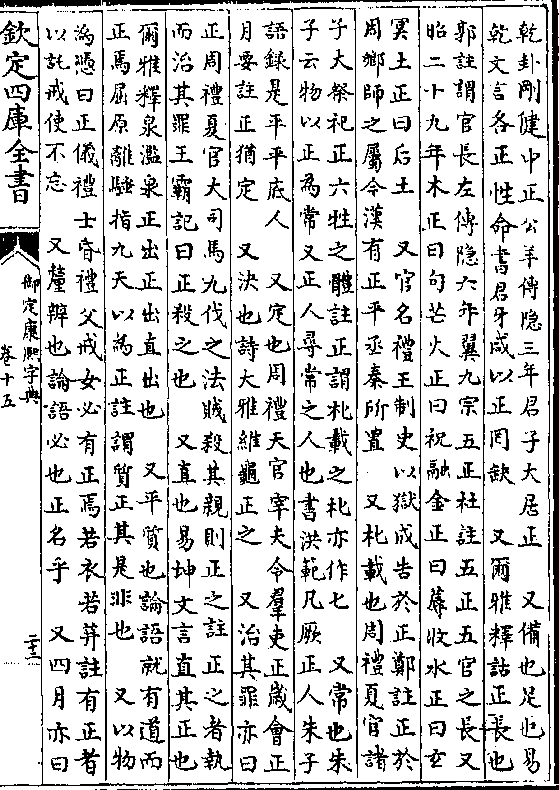 乾卦剛健中正公羊傳隱三年君子大居正　又備也足也易
乾文言各正性命書君牙咸以正罔缺　又爾雅釋詁正長也
郭註謂官長左傳隱六年翼九宗五正杜註五正五官之長又
昭二十九年木正曰句芒火正曰祝融金正曰蓐收水正曰玄
冥土正曰后土　又官名禮王制史以獄成告於正鄭註正於
周鄉師之屬今漢有正平丞秦所置　又朼載也周禮夏官諸
子大祭祀正六牲之體註正謂朼載之朼亦作七　又常也朱
子云物以正為常又正人尋常之人也書洪範凡厥正人朱子
語録是平平底人　又定也周禮天官宰夫令羣吏正歲會正
月要註正猶定　又決也詩大雅維龜正之　又治其罪亦曰
正周禮夏官大司馬九伐之法賊殺其親則正之註正之者執
而治其罪王霸記曰正殺之也　又直也易坤文言直其正也
爾雅釋泉濫泉正出正出直出也　又平質也論語就有道而
正焉屈原離騷指九天以為正註謂質正其是非也　又以物
為憑曰正儀禮士昏禮父戒女必有正焉若衣若笄註有正者
以託戒使不忘　又釐辨也論語必也正名乎　又四月亦曰
欽定四庫全書
御定康熙字典
卷十五
二十三